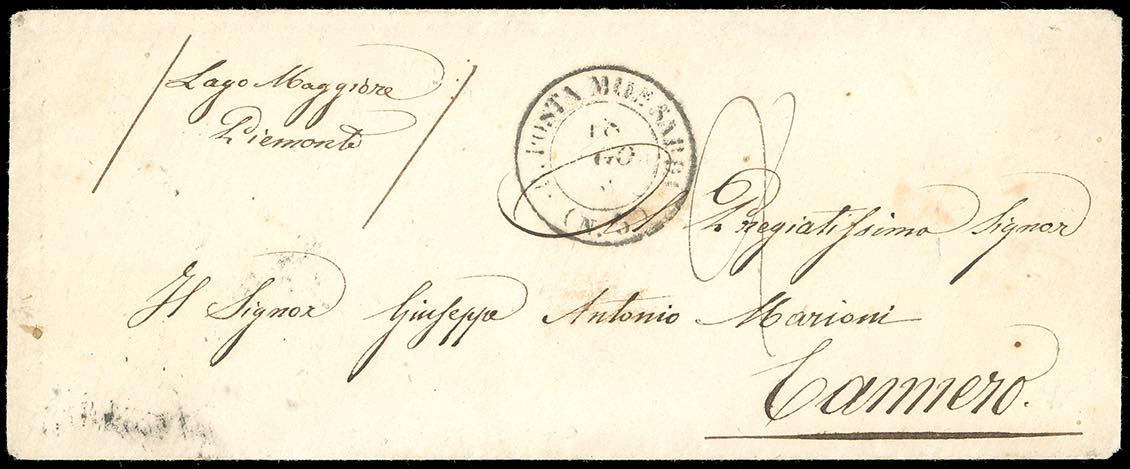 Lago Maggiore
Piemonte
POSTA MIL.E SARDA
18
GO
(N. 5)
Al Pregiatissimo Signor
Il Signor Giuseppe Antonio Marioni
Cannero.